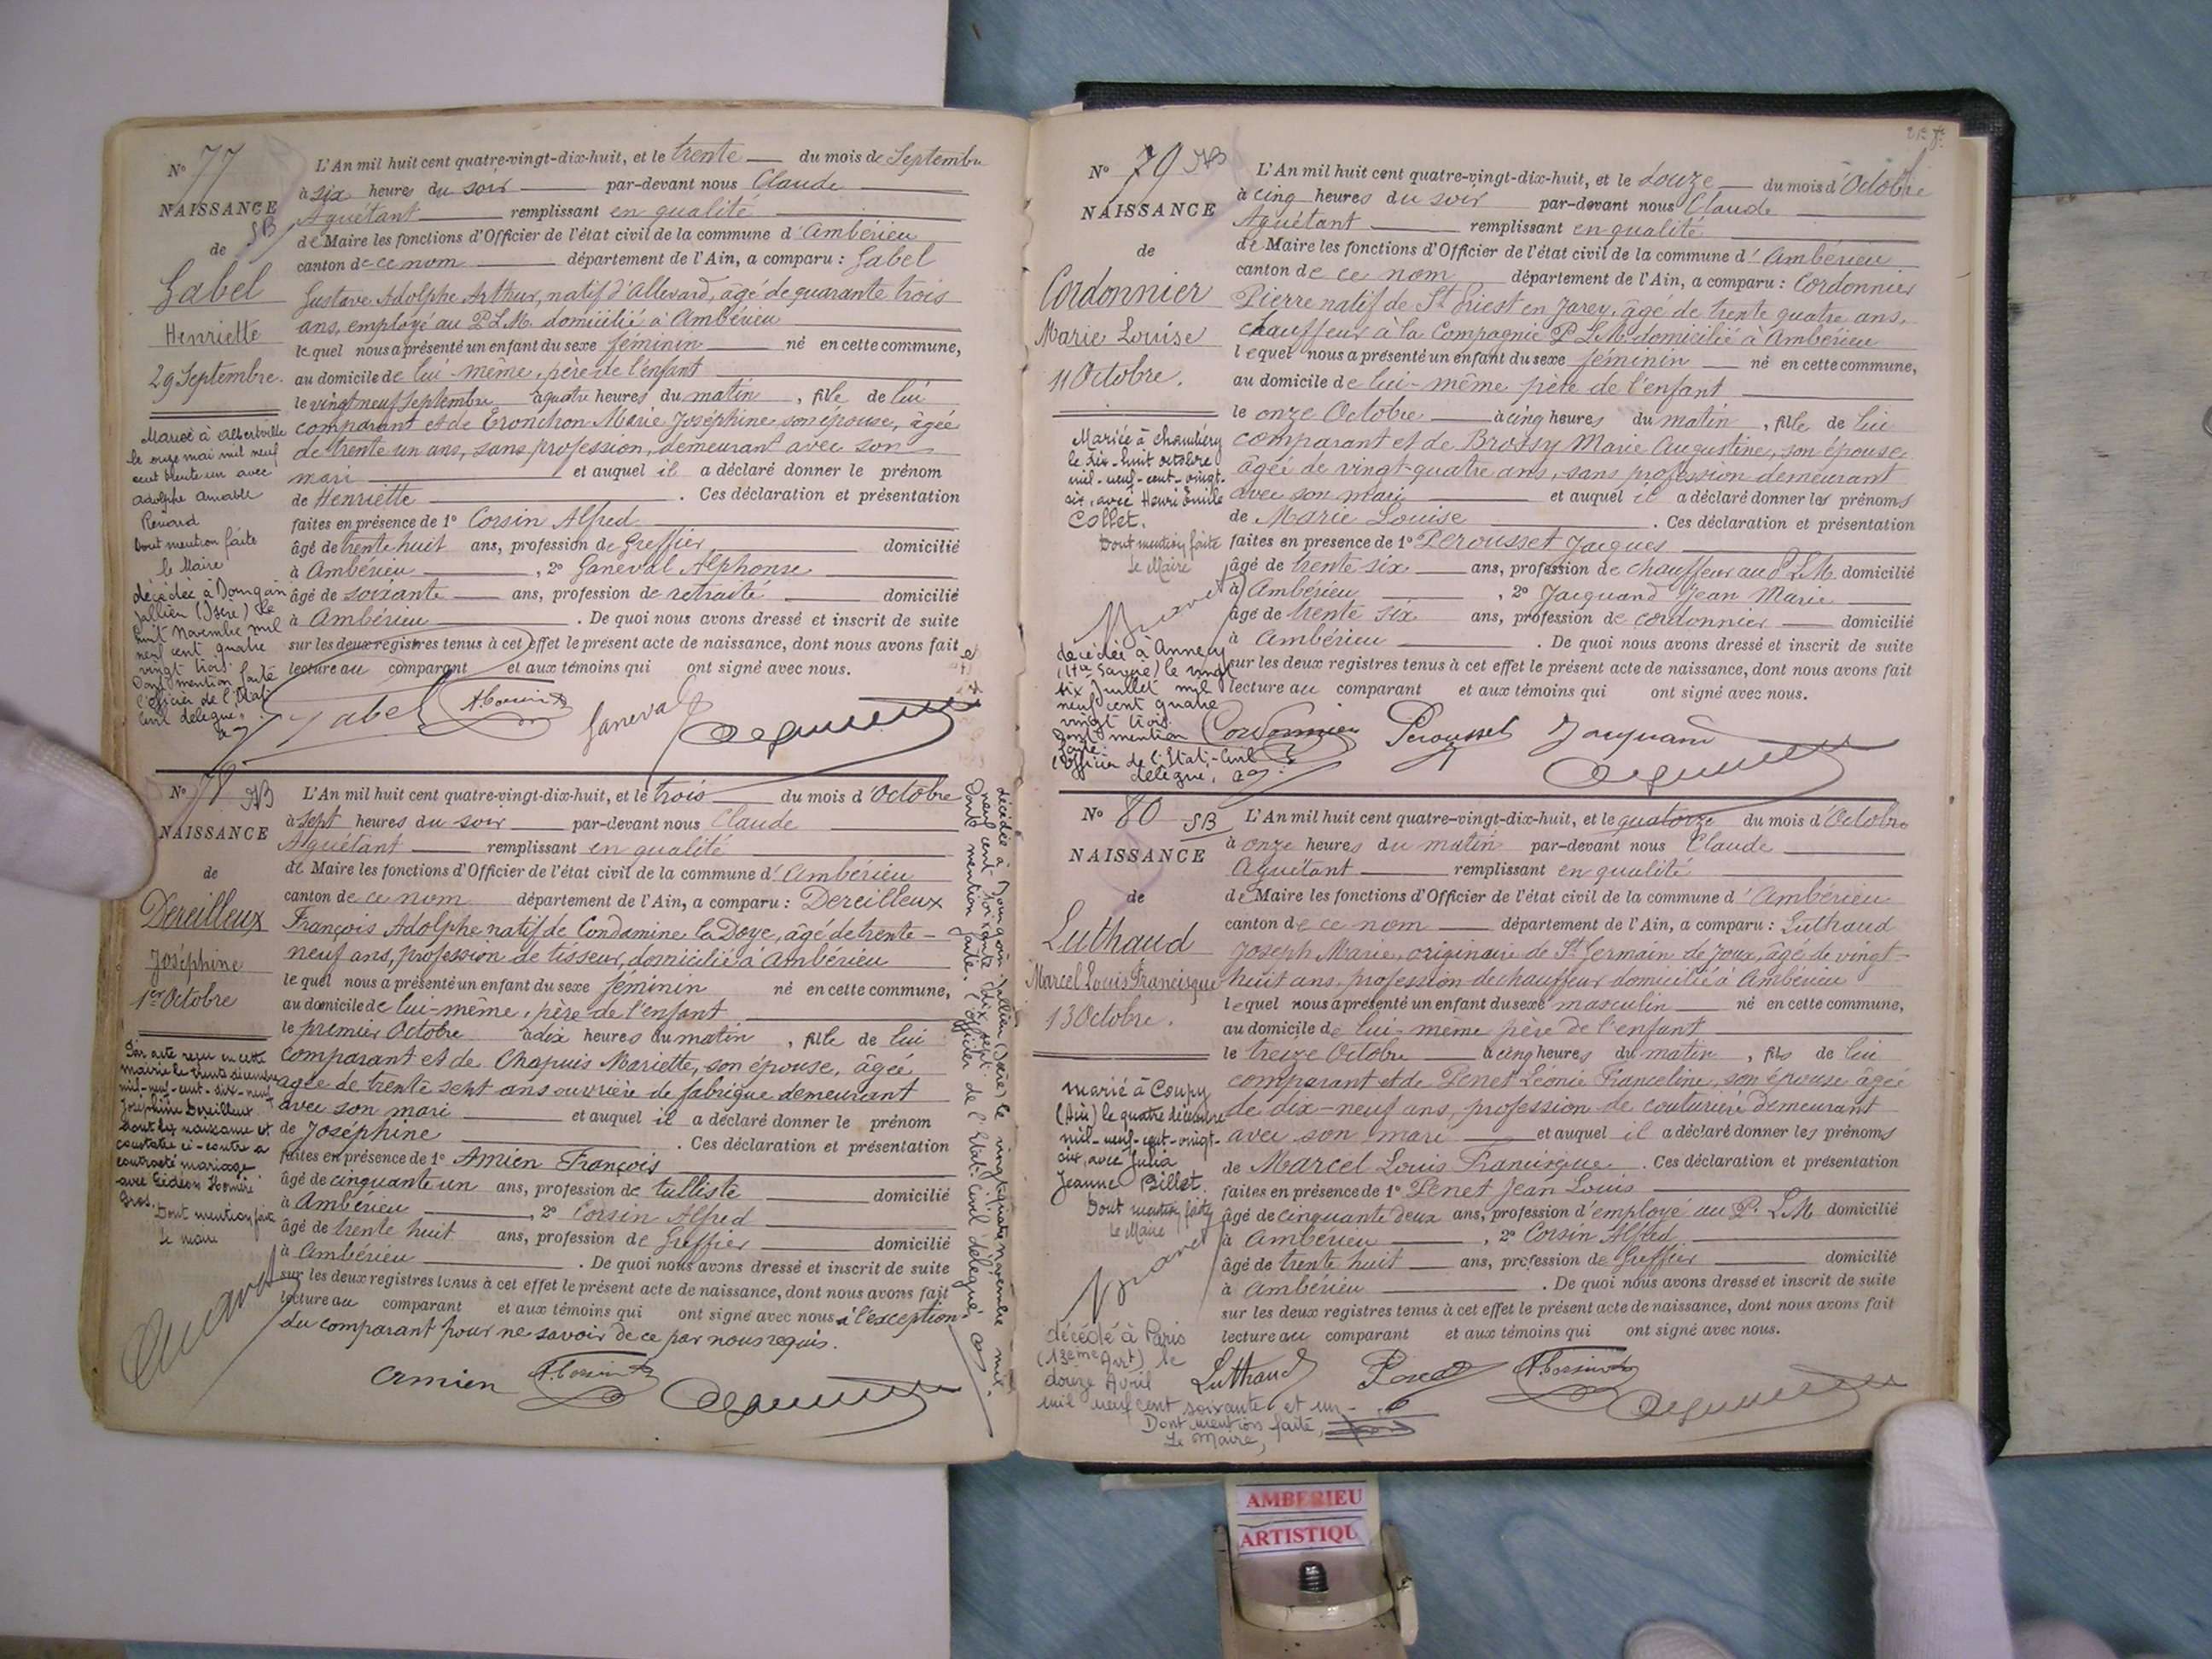 N° 77
NAISSANCE
de
SB
Gabel
Henriette
29 Septembre.
Mariée à Albertville
le onze mai mil neuf
cent trente un avec
Adolphe Amable
Renard
Dont mention faite
le Maire
décédée à Bourgoin
Jallieu (Isère) le
huit Novembre mil
neuf cent quatre
vingt trois.
Dont mention faite
l'Officier de l'Etat
Civil délégué,
L'An mil huit cent quatre-vingt-dix-huit, et le trente du mois de Septembre
à six heures du soir par-devant nous Claude
Aguétant remplissant en qualité
de Maire les fonctions d'Officier de l'état civil de la commune d'Ambérieu
canton de ce nom département de l'Ain, a comparu : Gabel
Gustave Adolphe Arthur, natif d'Allevard, âgé de quarante trois
ans, employé au P.L.M. domicilié à Ambérieu
lequel nous a présenté un enfant du sexe féminin né en cette commune,
au domicile de lui-même, père de l'enfant
le vingt neuf Septembre à quatre heures du matin, fille de lui
comparant et de Tronchon Marie Joséphine son épouse, âgée
de trente un ans, sans profession, demeurant avec son
mari et auquel il a déclaré donner le prénom
de Henriette . Ces déclaration et présentation
faites en présence de 1° Corsin Alfred
âgé de trente huit ans, profession de Greffier domicilié
à Ambérieu , 2° Ganeval Alphonse
âgé de soixante ans, profession de retraité domicilié
à Ambérieu . De quoi nous avons dressé et inscrit de suite
sur les deux registres tenus à cet effet le présent acte de naissance, dont nous avons fait
lecture au comparant et aux témoins qui ont signé avec nous.
Gabel A. Corsin Ganeval
N° 78 AB
NAISSANCE
de
Dereilleux
Joséphine
1er Octobre
Par acte reçu en cette
mairie le trente décembre
mil-neuf-cent-dix-neuf
Joséphine Dereilleux
dont la naissance est
constatée ci-contre a
contracté mariage
avec Gédéon Homère
Gros.
Dont mention faite
le maire
L'An mil huit cent quatre-vingt-dix-huit, et le trois du mois d'Octobre
à sept heures du soir par-devant nous Claude
Aguétant remplissant en qualité
de Maire les fonctions d'Officier de l'état civil de la commune d'Ambérieu
canton de ce nom département de l'Ain, a comparu : Dereilleux
François Adolphe natif de Condamine la Doye, âgé de trente-
neuf ans, profession de tisseur, domicilié à Ambérieu
lequel nous a présenté un enfant du sexe féminin né en cette commune,
au domicile de lui-même, père de l'enfant
le premier Octobre à dix heures du matin, fille de lui
comparant et de Chapuis Mariette, son épouse, âgée
agée de trente sept ans ouvrière de fabrique demeurant
avec son mari et auquel il a déclaré donner le prénom
de Joséphine . Ces déclaration et présentation
faites en présence de 1° Amien François
âgé de cinquante un ans, profession de tulliste domicilié
à Ambérieu , 2° Corsin Alfred
âgé de trente huit ans, profession de Greffier domicilié
à Ambérieu . De quoi nous avons dressé et inscrit de suite
sur les deux registres tenus à cet effet le présent acte de naissance, dont nous avons fait
lecture au comparant et aux témoins qui ont signé avec nous à l'exception
du comparant pour ne savoir de ce par nous requis.
Amien A. Corsin
décédée à Bourgoin-Jallieu (Isère) le vingt quatre novembre mil
neuf cent soixante dix sept.
Dont mention faite, l'Officier de l'Etat-Civil délégué,
N° 79 AB
NAISSANCE
de
Cordonnier
Marie Louise
11 Octobre.
Mariée à Chambéry
le dix-huit octobre
mil-neuf-cent-vingt-
six, avec Henri Emile
Collet.
Dont mention faite
Le Maire
décédée à Annecy
(Hte Savoie) le vingt
six Juillet mil
neuf cent quatre
vingt trois.
Dont mention
faite.
l'Officier de l'Etat-Civil
délégué,
L'An mil huit cent quatre-vingt-dix-huit, et le douze du mois d'Octobre
à cinq heures du soir par-devant nous Claude
Aguétant remplissant en qualité
de Maire les fonctions d'Officier de l'état civil de la commune d'Ambérieu
canton de ce nom département de l'Ain, a comparu : Cordonnier
Pierre natif de St Priest en Jarey, âgé de trente quatre ans,
chauffeur à la Compagnie P.L.M. domicilié à Ambérieu
lequel nous a présenté un enfant du sexe féminin né en cette commune,
au domicile de lui-même père de l'enfant
le onze Octobre à cinq heures du matin, fille de lui
comparant et de Brossy Marie Augustine, son épouse
âgée de vingt-quatre ans, sans profession demeurant
avec son mari et auquel il a déclaré donner les prénoms
de Marie Louise . Ces déclaration et présentation
faites en présence de 1° Perousset Jacques
âgé de trente six ans, profession de chauffeur au P.L.M. domicilié
à Ambérieu , 2° Jacquand Jean Marie
âgé de trente six ans, profession de cordonnier domicilié
à Ambérieu . De quoi nous avons dressé et inscrit de suite
sur les deux registres tenus à cet effet le présent acte de naissance, dont nous avons fait
lecture au comparant et aux témoins qui ont signé avec nous.
Cordonnier Perousset Jacquand
N° 80 SB
NAISSANCE
de
Luthaud
Marcel Louis Francisque
13 Octobre.
marié à Coupy
(Ain) le quatre décembre
mil-neuf-cent-vingt-
six, avec Julia
Jeanne Billet.
Dont mention faite
Le Maire
décédé à Paris
(13eme Arrt) le
douze Avril
mil neuf cent soixante et un.
Dont mention faite,
Le Maire,
L'An mil huit cent quatre-vingt-dix-huit, et le quatorze du mois d'Octobre
à onze heures du matin par-devant nous Claude
Aguétant remplissant en qualité
de Maire les fonctions d'Officier de l'état civil de la commune d'Ambérieu
canton de ce nom département de l'Ain, a comparu : Luthaud
Joseph Marie, originaire de St Germain de Joux, âgé de vingt-
huit ans, profession de chauffeur domicilié à Ambérieu
lequel nous a présenté un enfant du sexe masculin né en cette commune,
au domicile de lui-même père de l'enfant
le treize Octobre à cinq heures du matin, fils de lui
comparant et de Penet Léonie Franceline, son épouse âgée
de dix-neuf ans, profession de couturière demeurant
avec son mari et auquel il a déclaré donner les prénoms
de Marcel Louis Francisque . Ces déclaration et présentation
faites en présence de 1° Penet Jean Louis
âgé de cinquante deux ans, profession d'employé au P.L.M domicilié
à Ambérieu , 2° Corsin Alfred
âgé de trente huit ans, profession de Greffier domicilié
à Ambérieu . De quoi nous avons dressé et inscrit de suite
sur les deux registres tenus à cet effet le présent acte de naissance, dont nous avons fait
lecture au comparant et aux témoins qui ont signé avec nous.
Luthaud Penet A. Corsin
AMBERIEU
ARTISTIQU